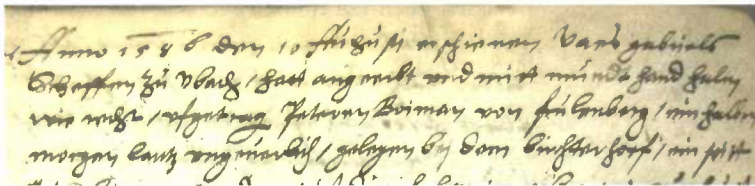 Anno 1586 den 10 Augusti erschienen Vaes gabriels
Scheffen zu Vbach / hatt angeerbt vnd mitt mundt hand halm
wie recht / vfgetrag Peteren Boiman von fulenberg / ein halben
morgen lantz vngeuerlich / gelegen by dem buchterhoef / ein seitt